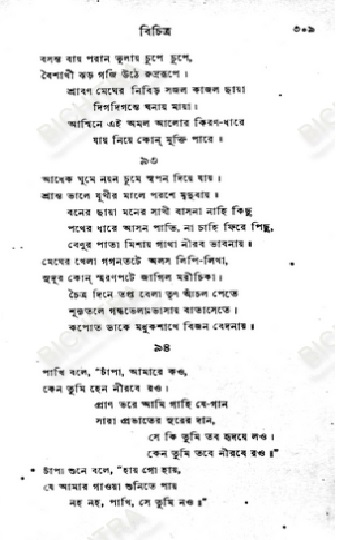 বিচিত্র
৩০৯
বসন্ত বায় পরান ভুলায় চুপে চুপে,
বৈশাখী ঝড় গর্জি উঠে রুদ্ররূপে।
শ্রাবণ মেঘের নিবিড় সজল কাজল ছায়া
দিগ্‌দিগন্তে ঘনায় মায়া।
আশ্বিনে এই অমল আলোর কিরণ-ধারে
যায় নিয়ে কোন্ মুক্তি পারে॥
৯৩
আধেক ঘুমে নয়ন চুমে স্বপন দিয়ে যায়।
শ্রান্ত ভালে যূথীর মালে পরশে মৃদুবায়॥
বনের ছায়া মনের সাথী বাসনা নাহি কিছু
পথের ধারে আসন পাতি, না চাহি ফিরে পিছু,
বেণুর পাতা মিশায় গাথা নীরব ভাবনায়॥
মেঘের খেলা গগনতটে অলস লিপি-লিখা,
সুদূর কোন্ স্মরণপটে জাগিল মরীচিকা।
চৈত্র দিনে তপ্ত বেলা তৃণ আঁচল পেতে
শূন্যতলে গন্ধভেলা ভাসায় বাতাসেতে।
কপোত ডাকে মধুকশাখে বিজন বেদনায়॥
৯৪
পাখি বলে, "চাঁপা, আমারে কও,
কেন তুমি হেন নীরবে রও।
প্রাণ ভরে আমি গাহি যে-গান
সারা প্রভাতের সুরের দান,
সে কি তুমি তব হৃদয়ে লও।
কেন তুমি তবে নীরবে রও॥"
চাঁপা শুনে বলে, "হায় গো হায়,
যে আমার গাওয়া শুনিতে পায়
নহ নহ, পাখি, সে তুমি নও॥"